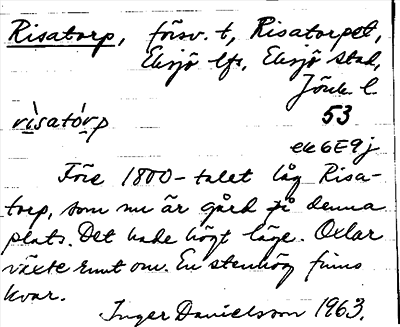 Risatorp, försv. t, Risatorpet,
Eksjö lfs, Eksjö stad,
Jönk. l.
rìsatórp 53
ek 6E9j
Före 1800-talet låg Risa-
torp, som nu är gård på denna
plats. Det hade högt läge. Oxlar
växte runt om. En stenhög finns
kvar.
Inger Danielsson 1963.